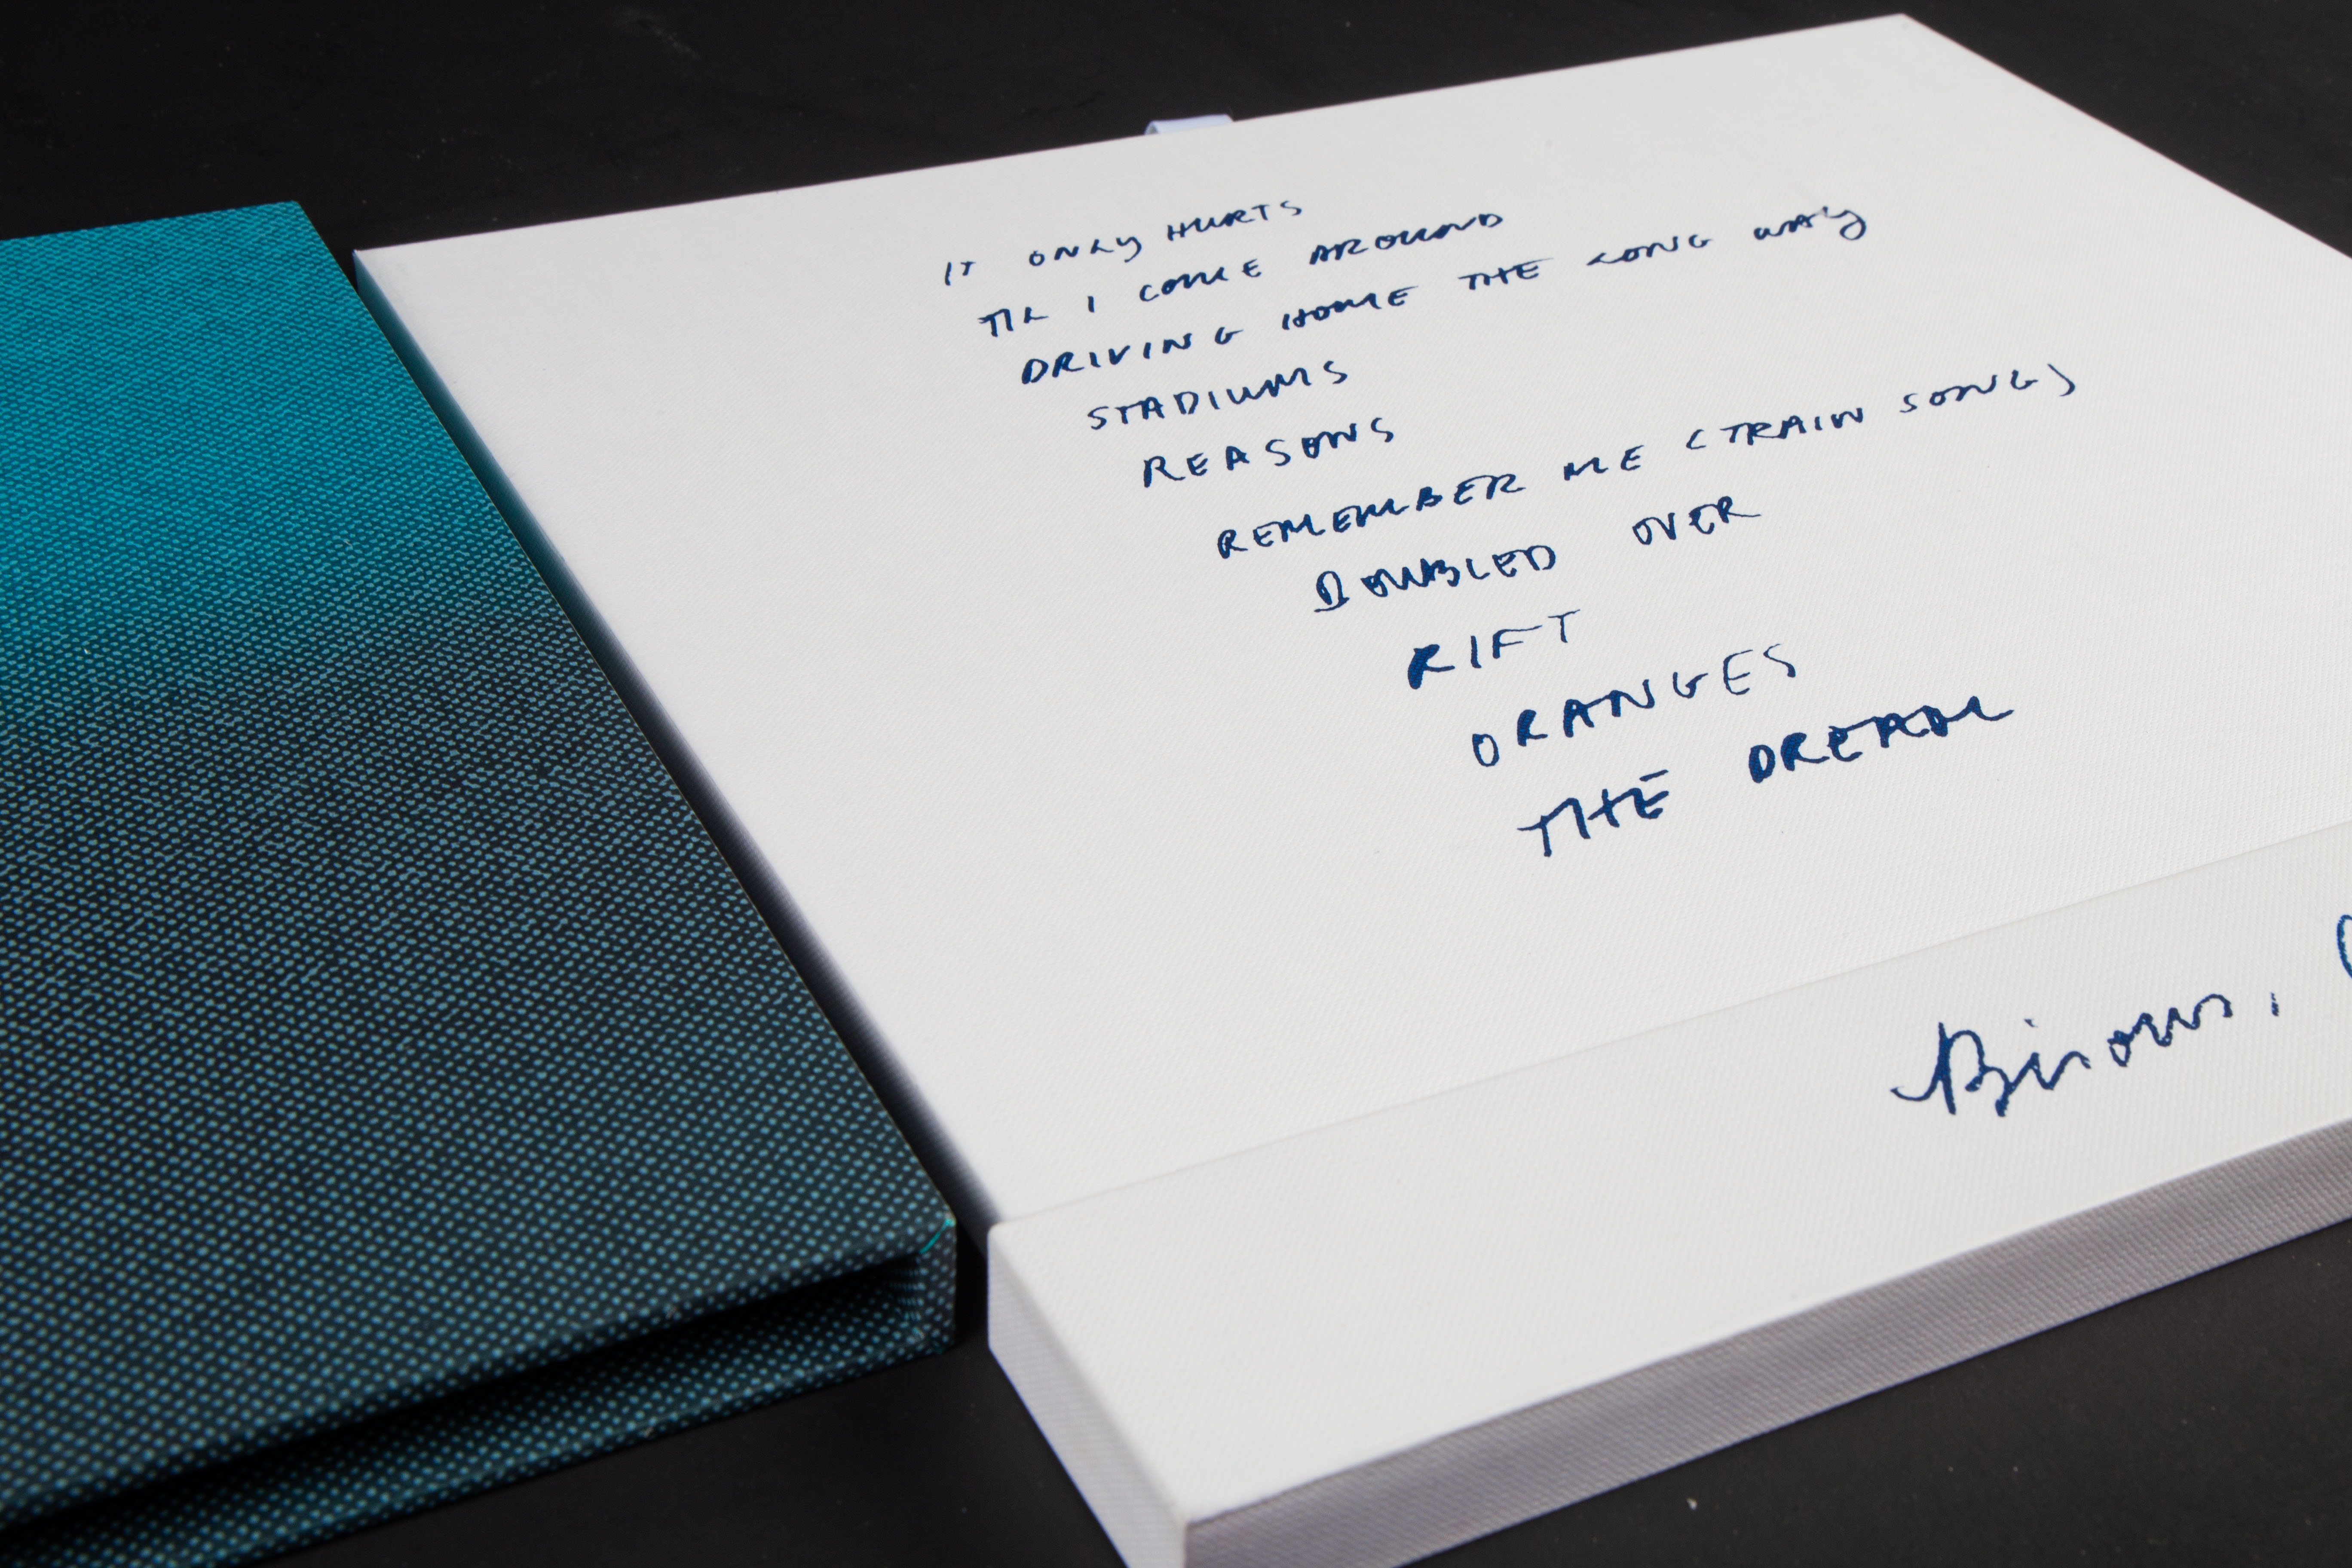 IT ONLY HURTS
TIL I COME AROUND
DRIVING HOME THE LONG WAY
STADIUMS
REASONS
REMEMBER ME (TRAIN SONG)
DOUBLED OVER
RIFT
ORANGES
THE DREAM